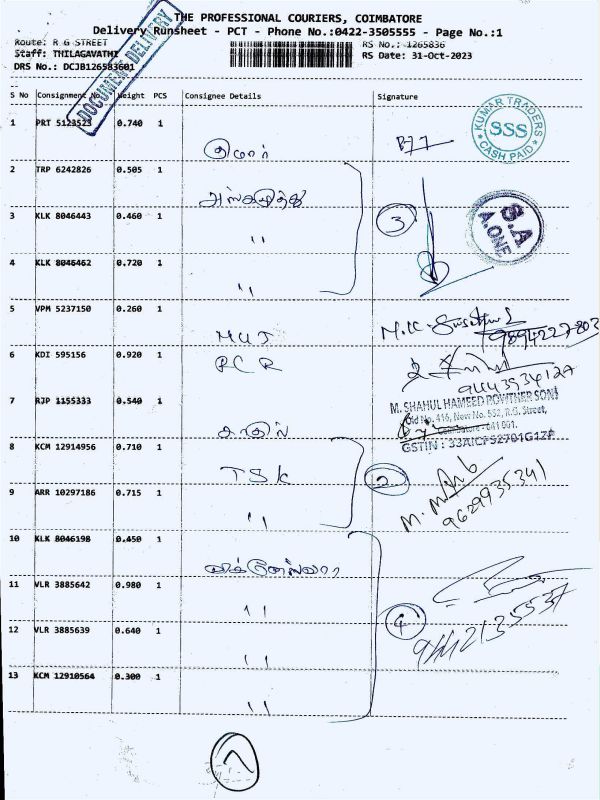 THE PROFESSIONAL COURIERS, COIMBATORE
Delivery Runsheet - PCT - Phone No.:0422-3505555 - Page No.:1
Route: R G STREET
RS No.: 1265836
Staff: THILAGAVATHI
RS Date: 31-Oct-2023
DRS No.: DCJB126583601
DOCUMENT DELIVERY
S No Consignment No. Weight PCS Consignee Details Signature
1 PRT 5123523 0.740 1
KUMAR TRADERS
SSS
CASH PAID
2 TRP 6242826 0.505 1
3 KLK 8046443 0.460 1 " 3
S.A
A.ONE
4 KLK 8046462 0.720 1 "
5 VPM 5237150 0.260 1 MUJ
6 KDI 595156 0.920 1 PCR
7 RJP 1155333 0.540 1
M. SHAHUL HAMEED ROWTHER SONS
Old No. 416, New No. 552, R.G. Street,
Coimbatore - 641 001.
GSTIN : 33AICFS2701G1ZF
8 KCM 12914956 0.710 1 TSK 2
9 ARR 10297186 0.715 1 "
9629935341
10 KLK 8046198 0.450 1
11 VLR 3885642 0.980 1 "
4
12 VLR 3885639 0.640 1 "
13 KCM 12910564 0.300 1 "